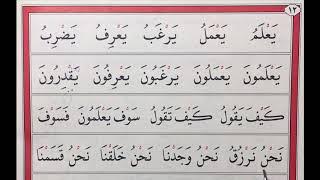 ١٢
يَعْلَمُ يَعْمَلُ يَرْغَبُ يَعْرِفُ يَضْرِبُ
يَعْلَمُونَ يَعْمَلُونَ يَرْغَبُونَ يَعْرِفُونَ يَقْدِرُونَ
كَيْفَ يَقُولُ كَيْفَ تَقُولُ سَوْفَ يَعْلَمُونَ فَسَوْفَ
نَحْنُ نَرْزُقُ نَحْنُ وَجَدْنَا نَحْنُ خَلَقْنَا نَحْنُ قَسَمْنَا